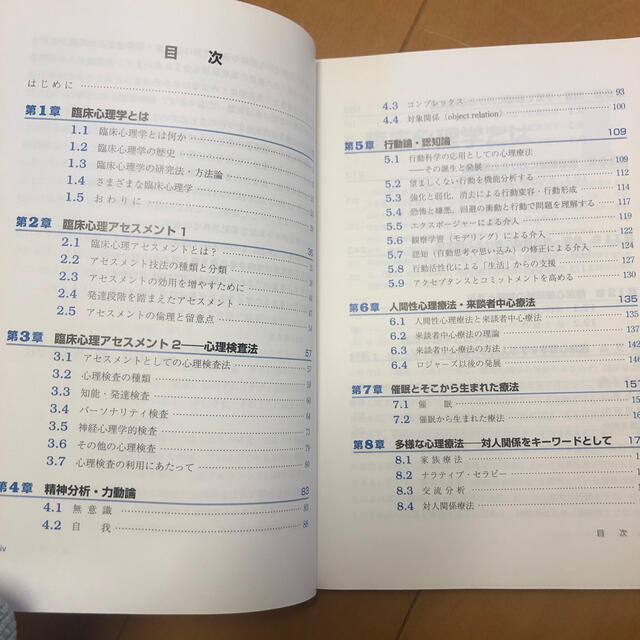 目　次
はじめに
第1章 臨床心理学とは
1.1 臨床心理学とは何か
1.2 臨床心理学の歴史
1.3 臨床心理学の研究法・方法論
1.4 さまざまな臨床心理学
1.5 おわりに
第2章 臨床心理アセスメント 1
2.1 臨床心理アセスメントとは？
2.2 アセスメント技法の種類と分類
2.3 アセスメントの効用を増やすために
2.4 発達段階を踏まえたアセスメント
2.5 アセスメントの倫理と留意点
第3章 臨床心理アセスメント 2――心理検査法 57
3.1 アセスメントとしての心理検査法
3.2 心理検査の種類
3.3 知能・発達検査
3.4 パーソナリティ検査
3.5 神経心理学的検査
3.6 その他の心理検査 79
3.7 心理検査の利用にあたって 80
第4章 精神分析・力動論 83
4.1 無意識 83
4.2 自我 88
iv
4.3 コンプレックス 93
4.4 対象関係 (object relation) 100
第5章 行動論・認知論 109
5.1 行動科学の応用としての心理療法
――その誕生と発展 109
5.2 望ましくない行動を機能分析する 112
5.3 強化と弱化，消去による行動変容・行動形成 114
5.4 恐怖と嫌悪，回避の衝動と行動で問題を理解する 117
5.5 エクスポージャーによる介入 119
5.6 観察学習（モデリング）による介入 122
5.7 認知（自動思考や思い込み）の修正による介入 124
5.8 行動活性化による「生活」からの支援 127
5.9 アクセプタンスとコミットメントを高める 130
第6章 人間性心理療法・来談者中心療法 135
6.1 人間性心理療法と来談者中心療法 135
6.2 来談者中心療法の理論 137
6.3 来談者中心療法の方法 142
6.4 ロジャーズ以後の発展 146
第7章 催眠とそこから生まれた療法 151
7.1 催　眠
7.2 催眠から生まれた療法
第8章 多様な心理療法――対人関係をキーワードとして
8.1 家族療法
8.2 ナラティブ・セラピー
8.3 交流分析
8.4 対人関係療法
目　次